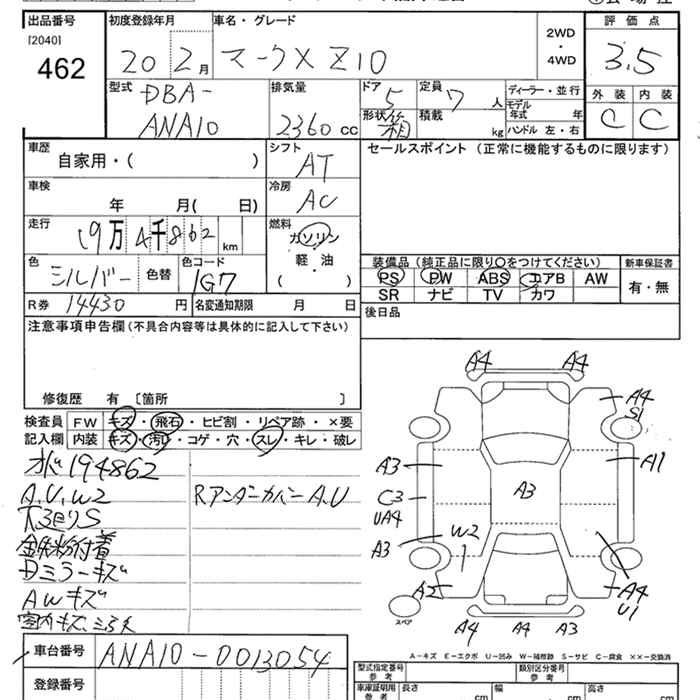 出品番号
[2040]
462
初度登録年月
20 2月
車名・グレード
マークX Z10
2WD
・
4WD
評価点
3.5
型式
DBA-
ANA10
排気量
2360 cc
ドア
5
形状
箱
定員
7 人
積載
kg
ディーラー・並行
モデル
年式 年
ハンドル 左・右
外装 内装
C C
車歴
自家用・( )
シフト
AT
セールスポイント (正常に機能するものに限ります)
車検
年 月( 日)
冷房
AC
走行
19万4千862 km
燃料
ガソリン
・
軽・油
( )
色
シルバー
色替
色コード
1G7
装備品 (純正品に限り○をつけてください)
PS PW ABS エアB AW
SR ナビ TV カワ
新車保証書
有・無
R券 14430 円
名変通知期限 月 日
後日品
注意事項申告欄(不具合内容等は具体的に記入して下さい)
修復歴 有 〔箇所 〕
検査員
記入欄
FW キズ・飛石・ヒビ割・リペア跡・×要
内装 キズ・汚レ・コゲ・穴・スレ・キレ・破レ
194862
A.U.W2
下廻りS
鉄粉付着
Dミラーキズ
AWキズ
室内キズ、
Rアンダーカバー A.U
A4 A4
A4
S1
A3 A1
A3
C3
UA4
A3
W2
A2
A4
U1
スペア
A4 A4 A3
A-キズ E-エクボ U-凹み W-補修跡 S-サビ C-腐食 ××-交換済
車台番号
ANA10-0013054
登録番号
型式指定番号
参考
類別区分番号
参考
車庫証明用
参考
長さ cm
幅 cm
高さ cm